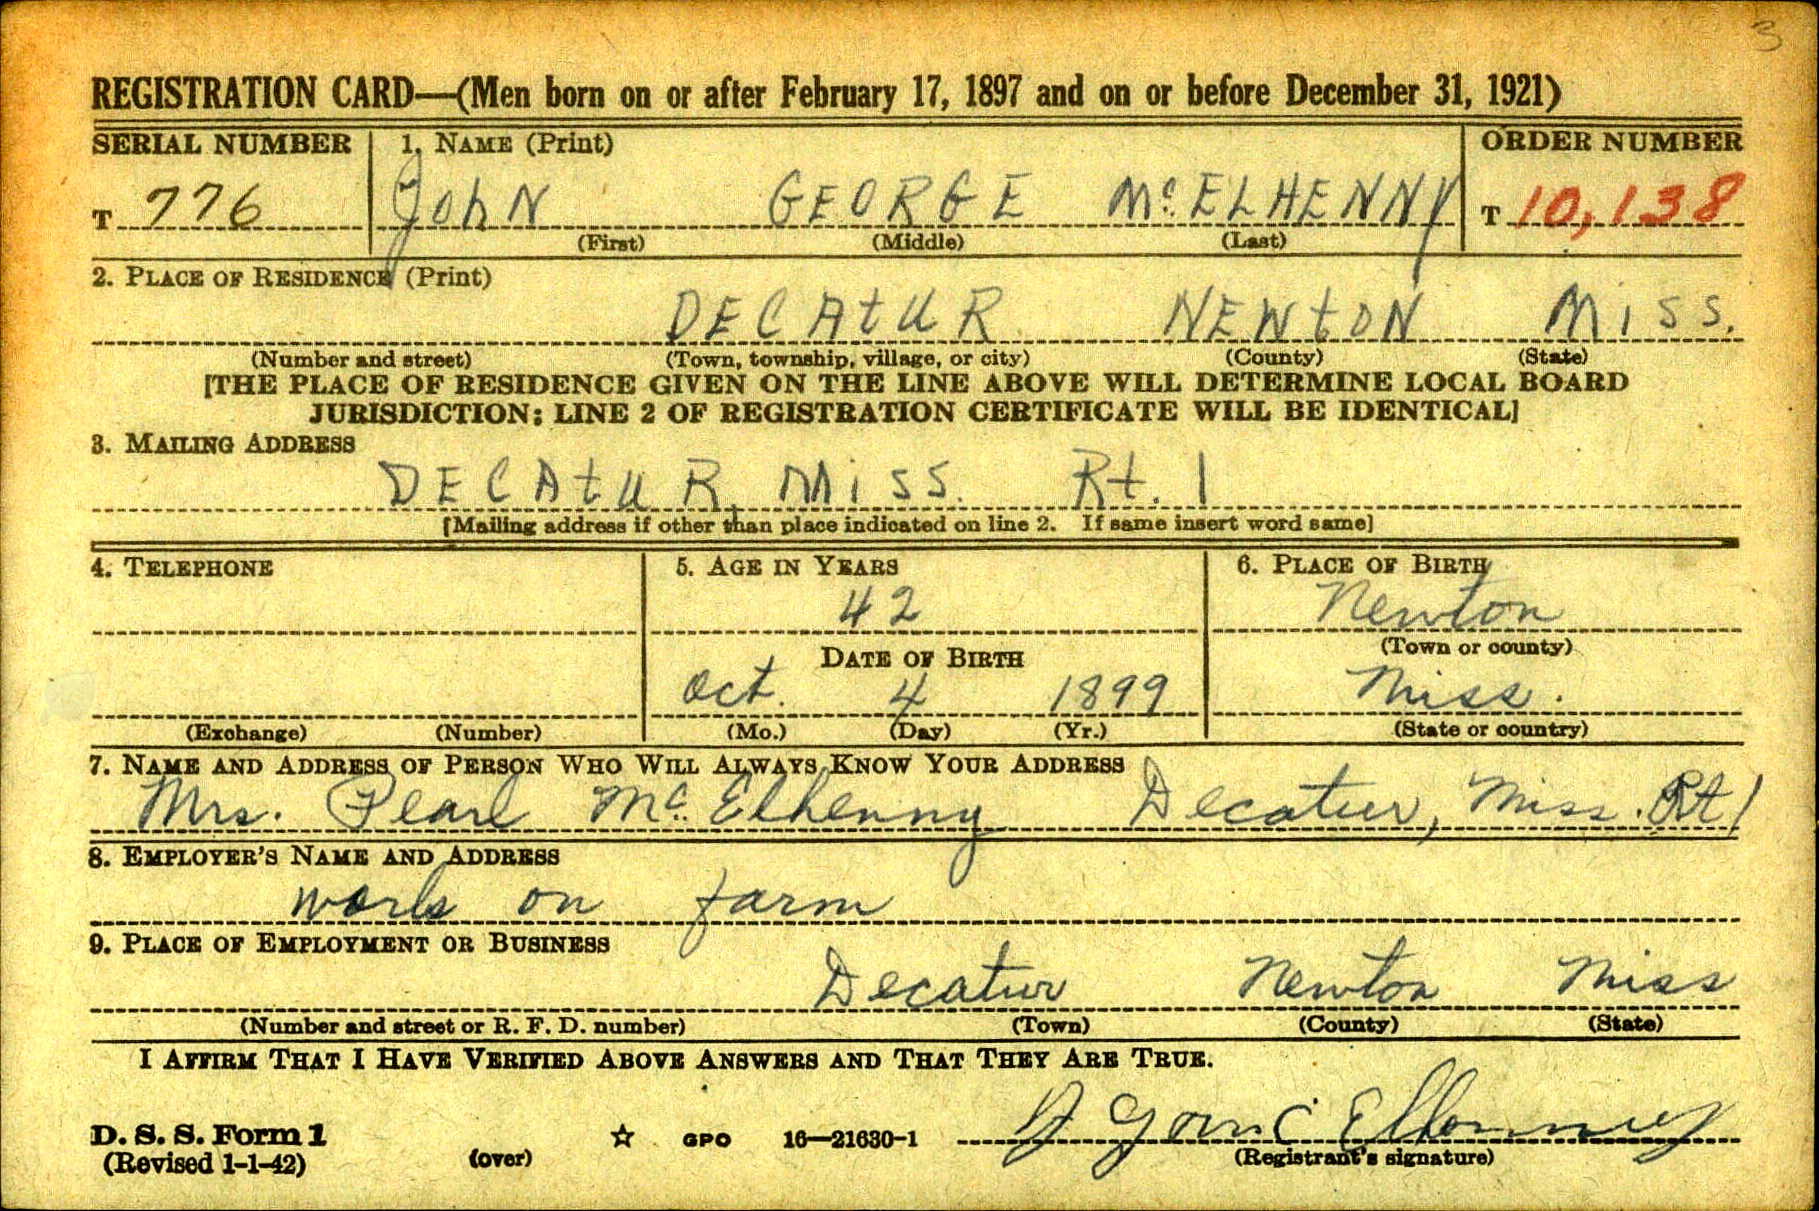 3
REGISTRATION CARD—(Men born on or after February 17, 1897 and on or before December 31, 1921)
SERIAL NUMBER 1. NAME (Print) ORDER NUMBER
T 776 JOhN GEORGE McELHENNY T 10,138
(First) (Middle) (Last)
2. PLACE OF RESIDENCE (Print)
DECAtUR NEWtON MiSS.
(Number and street) (Town, township, village, or city) (County) (State)
[THE PLACE OF RESIDENCE GIVEN ON THE LINE ABOVE WILL DETERMINE LOCAL BOARD
JURISDICTION; LINE 2 OF REGISTRATION CERTIFICATE WILL BE IDENTICAL]
3. MAILING ADDRESS
DECAtUR, MiSS. Rt. 1
[Mailing address if other than place indicated on line 2. If same insert word same]
4. TELEPHONE 5. AGE IN YEARS 6. PLACE OF BIRTH
42 Newton
DATE OF BIRTH (Town or county)
Oct. 4 1899 Miss.
(Exchange) (Number) (Mo.) (Day) (Yr.) (State or country)
7. NAME AND ADDRESS OF PERSON WHO WILL ALWAYS KNOW YOUR ADDRESS
Mrs. Pearl McElhenny Decatur, Miss. Rt 1
8. EMPLOYER'S NAME AND ADDRESS
works on farm
9. PLACE OF EMPLOYMENT OR BUSINESS
Decatur Newton Miss
(Number and street or R. F. D. number) (Town) (County) (State)
I AFFIRM THAT I HAVE VERIFIED ABOVE ANSWERS AND THAT THEY ARE TRUE.
D. S. S. Form 1
(Revised 1-1-42) (over) ☆ GPO 16—21630-1
(Registrant's signature)